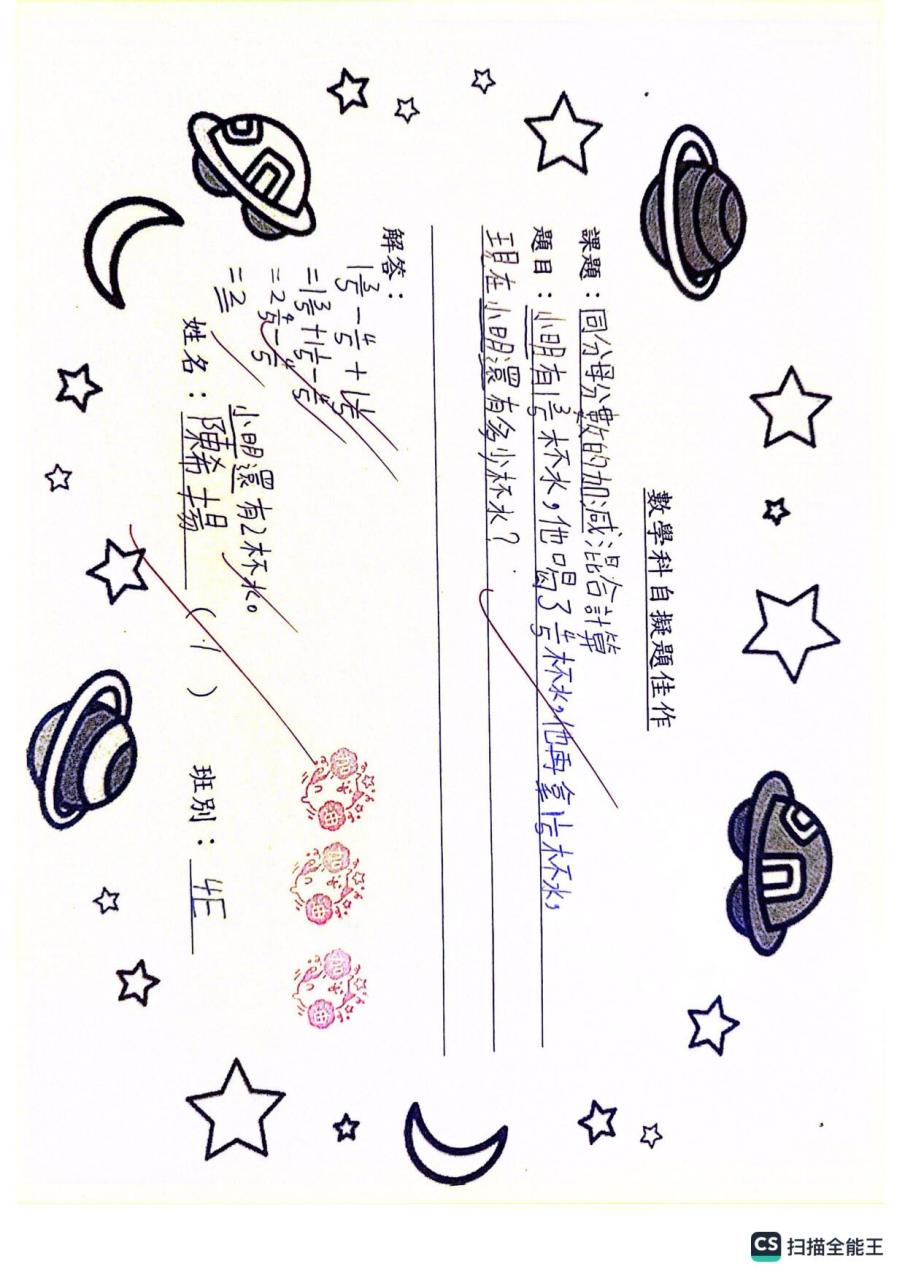 數學科自擬題佳作
課題：同分母分數的加減混合計算
題目：小明有1 3/5杯水，他喝了4/5杯水，他再拿1 1/5杯水，
現在小明還有多少杯水？
解答：
1 3/5 - 4/5 + 1 1/5
= 1 3/5 + 1 1/5 - 4/5
= 2 4/5 - 4/5
= 2
小明還有2杯水。
姓名：陳希 (1) 班別：4E
CS 扫描全能王